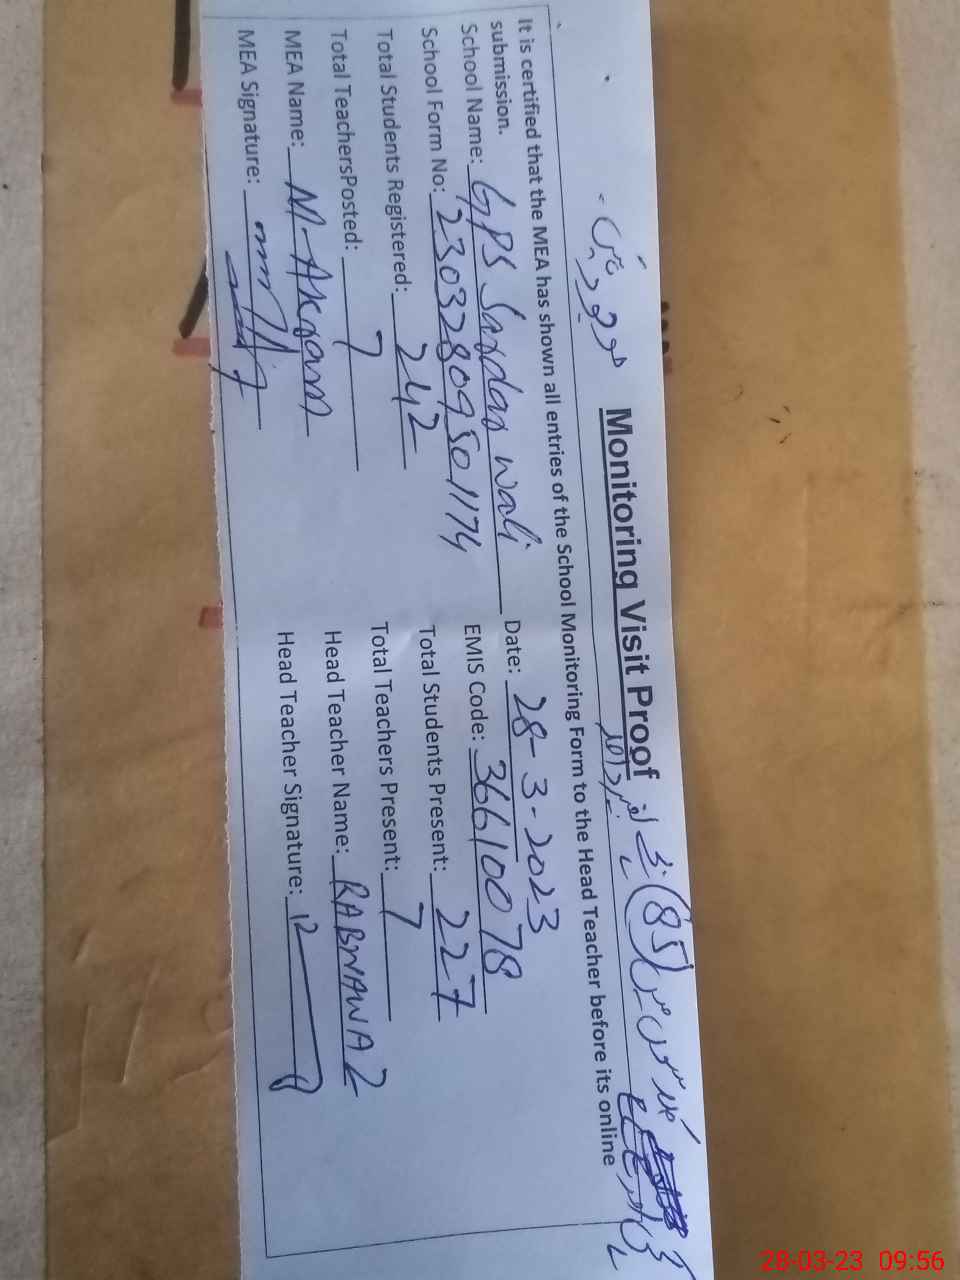 Monitoring Visit Proof
(85)
موجود ہیں
It is certified that the MEA has shown all entries of the School Monitoring Form to the Head Teacher before its online
submission.
School Name: GPS Sardar wali Date: 28-3-2023
School Form No: 23032809501174 EMIS Code: 36610078
Total Students Registered: 242 Total Students Present: 227
Total TeachersPosted: 7 Total Teachers Present: 7
MEA Name: M-Akram Head Teacher Name: RABNAWAZ
MEA Signature: Head Teacher Signature:
28-03-23 09:56